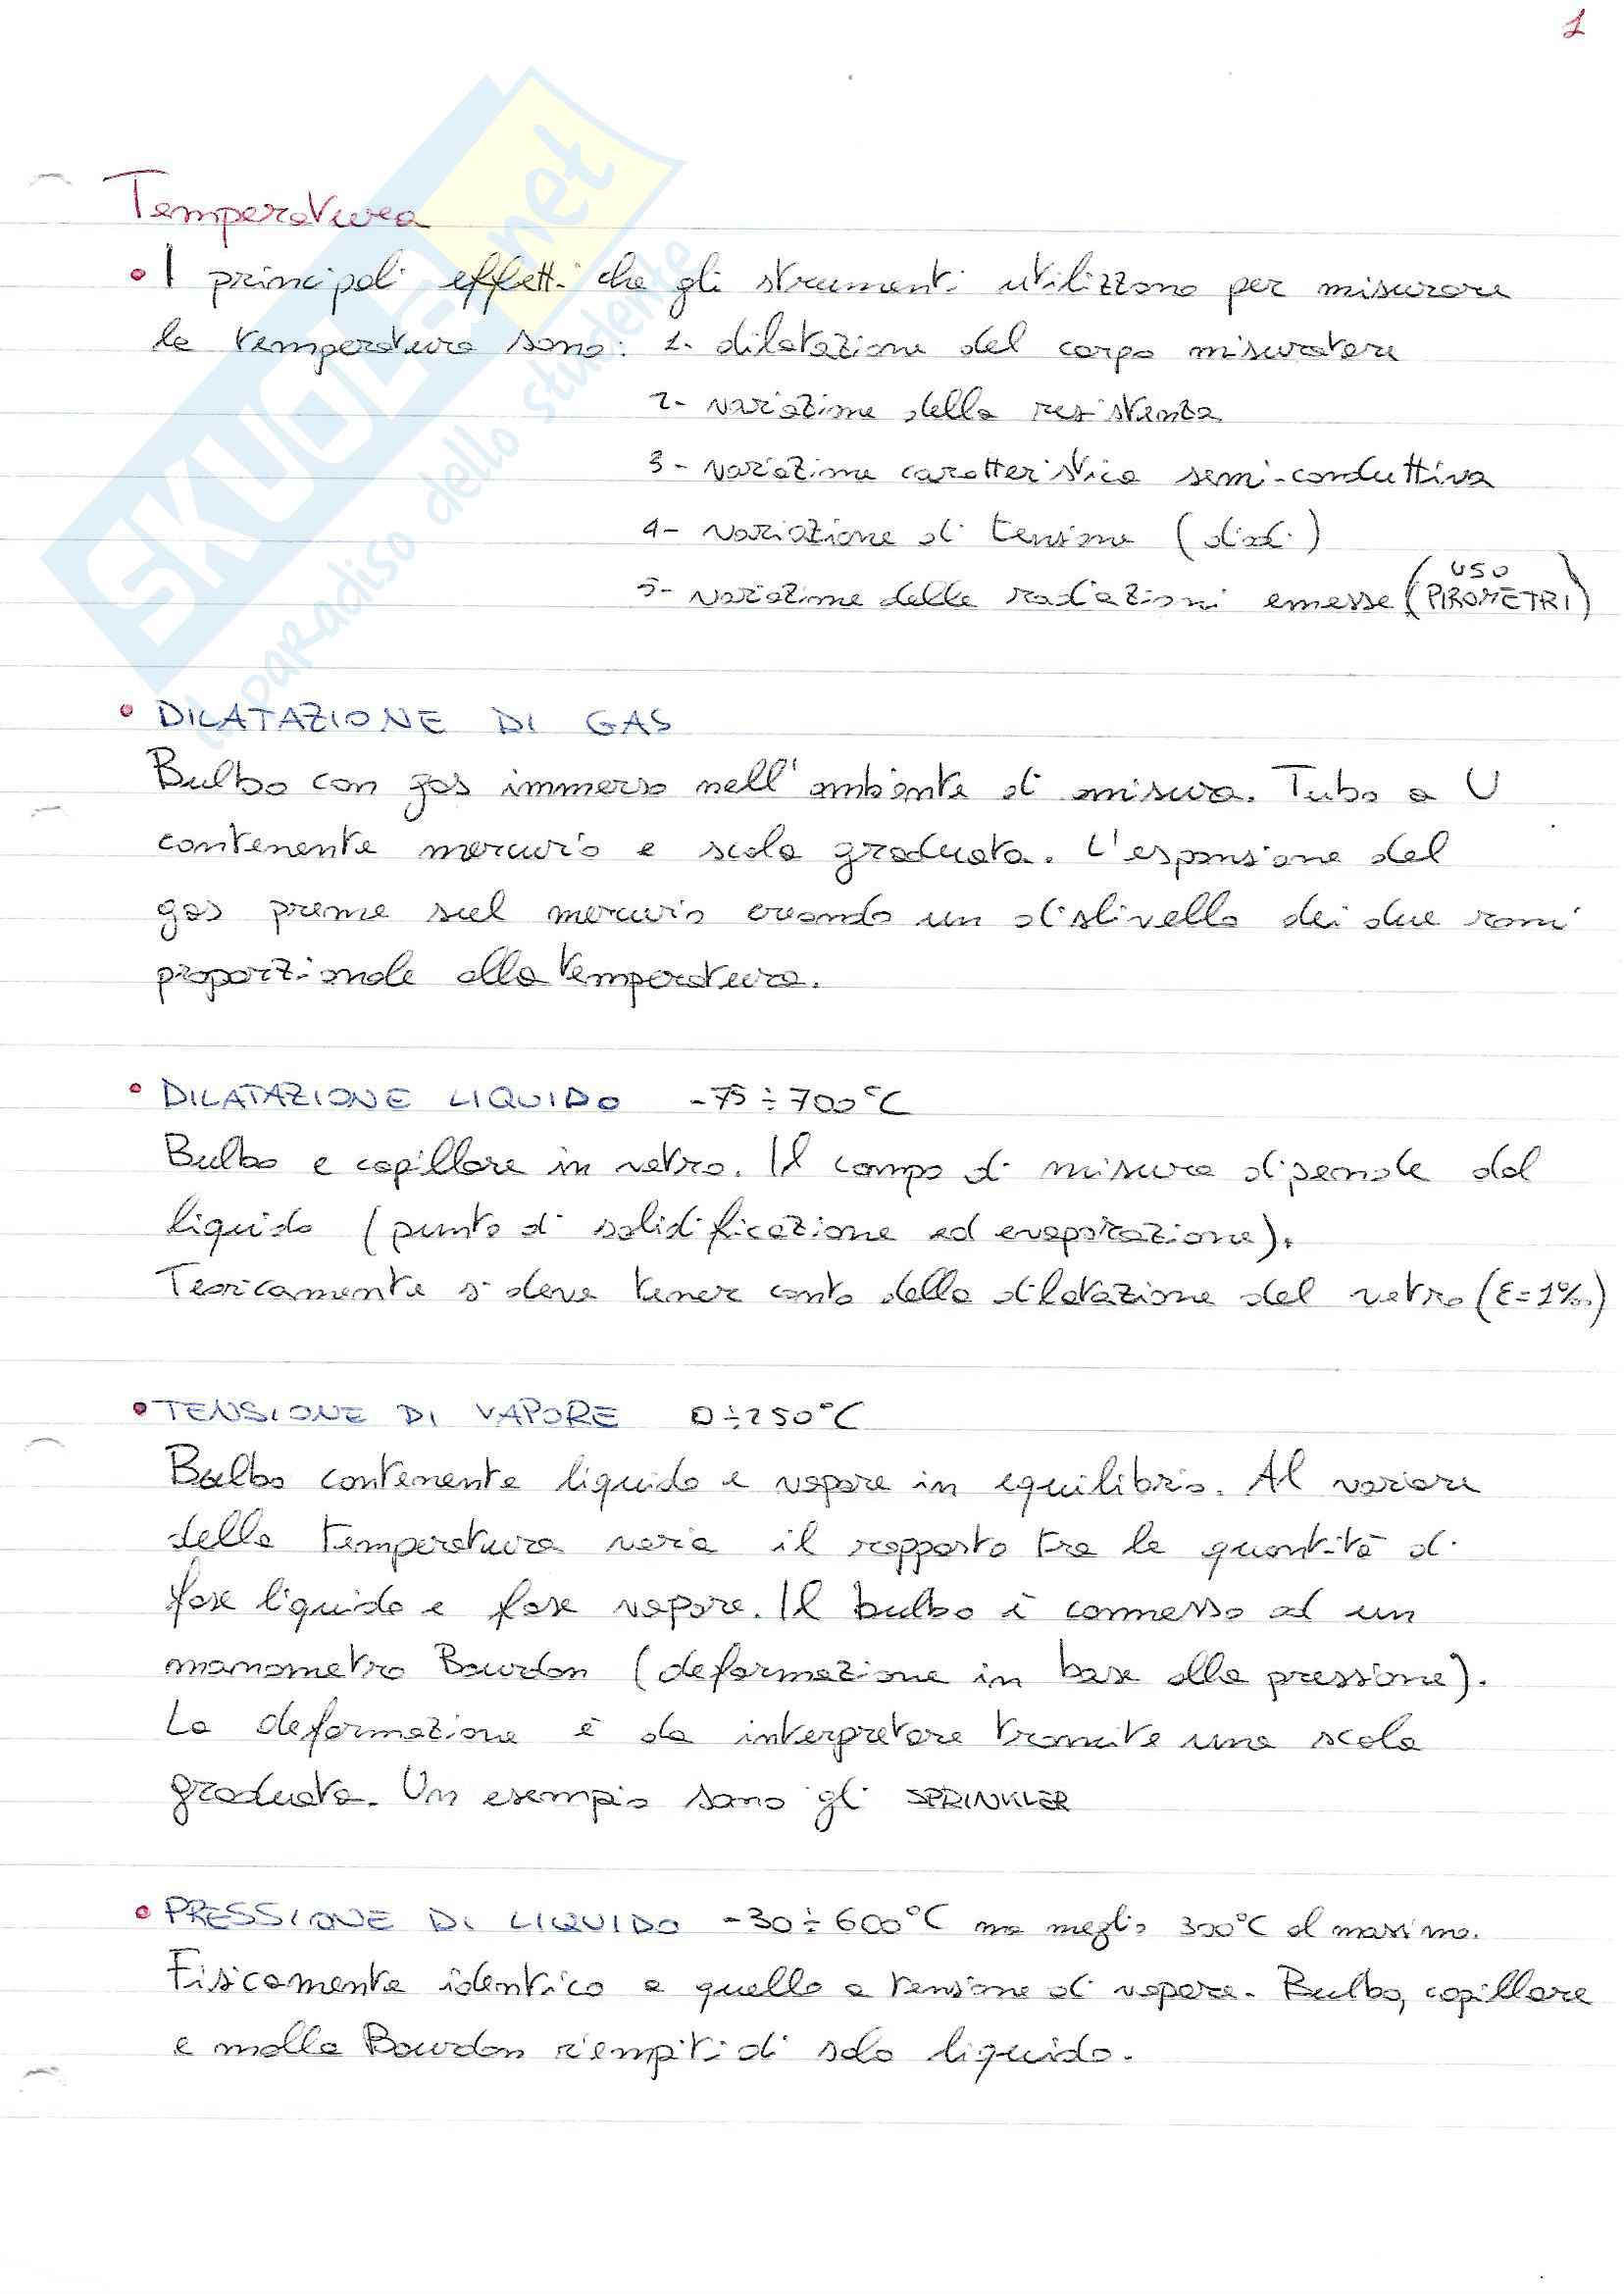 1
SKUOLA.net
il paradiso dello studente
Temperatura
• I principali effetti che gli strumenti utilizzano per misurare
la temperatura sono: 1- dilatazione del corpo misuratore
2- variazione della resistenza
3- variazione caratteristica semi-conduttiva
4- variazione di tensione (diodi)
5- variazione delle radiazioni emesse (USO PIROMETRI)
• DILATAZIONE DI GAS
Bulbo con gas immerso nell'ambiente di misura. Tubo a U
contenente mercurio e scala graduata. L'espansione del
gas preme sul mercurio creando un dislivello dei due rami
proporzionale alla temperatura.
• DILATAZIONE LIQUIDO -75÷700°C
Bulbo e capillare in vetro. Il campo di misura dipende dal
liquido (punto di solidificazione ed evaporazione).
Teoricamente si deve tener conto della dilatazione del vetro (ε=1‰)
• TENSIONE DI VAPORE 0÷250°C
Bulbo contenente liquido e vapore in equilibrio. Al variare
della temperatura varia il rapporto tra le quantità di
fase liquida e fase vapore. Il bulbo è connesso ad un
manometro Bourdon (deformazione in base alla pressione).
La deformazione è da interpretare tramite una scala
graduata. Un esempio sono gli SPRINKLER
• PRESSIONE DI LIQUIDO -30÷600°C ma meglio 300°C al massimo.
Fisicamente identico a quello a tensione di vapore. Bulbo, capillare
e molla Bourdon riempiti di solo liquido.